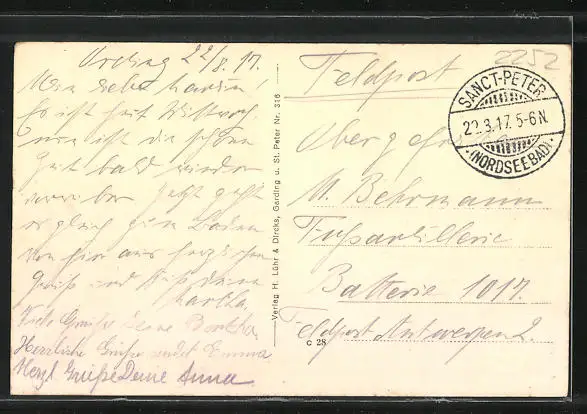 Ording 22/8.17.
Mein lieber
Es ist heut Mittwoch,
nun ist die schöne
Zeit bald wieder
vorüber. Jetzt geht
es gleich zum Baden.
Von hier aus herzlichen
Gruß und Kuß deine
Martha.
Viele Grüße deine
Herzliche Grüße sendet Emma
Herzl. Grüße Deine Anna
Verlag H. Lühr & Dircks, Garding u. St. Peter Nr. 316
c 28
2252
Feldpost
SANCT-PETER
22.8.17.5-6N.
(NORDSEEBAD)
Obergefr.
M. Behrmann
Fussartillerie
Batterie 1017.
Feldpost Antwerpen 2.